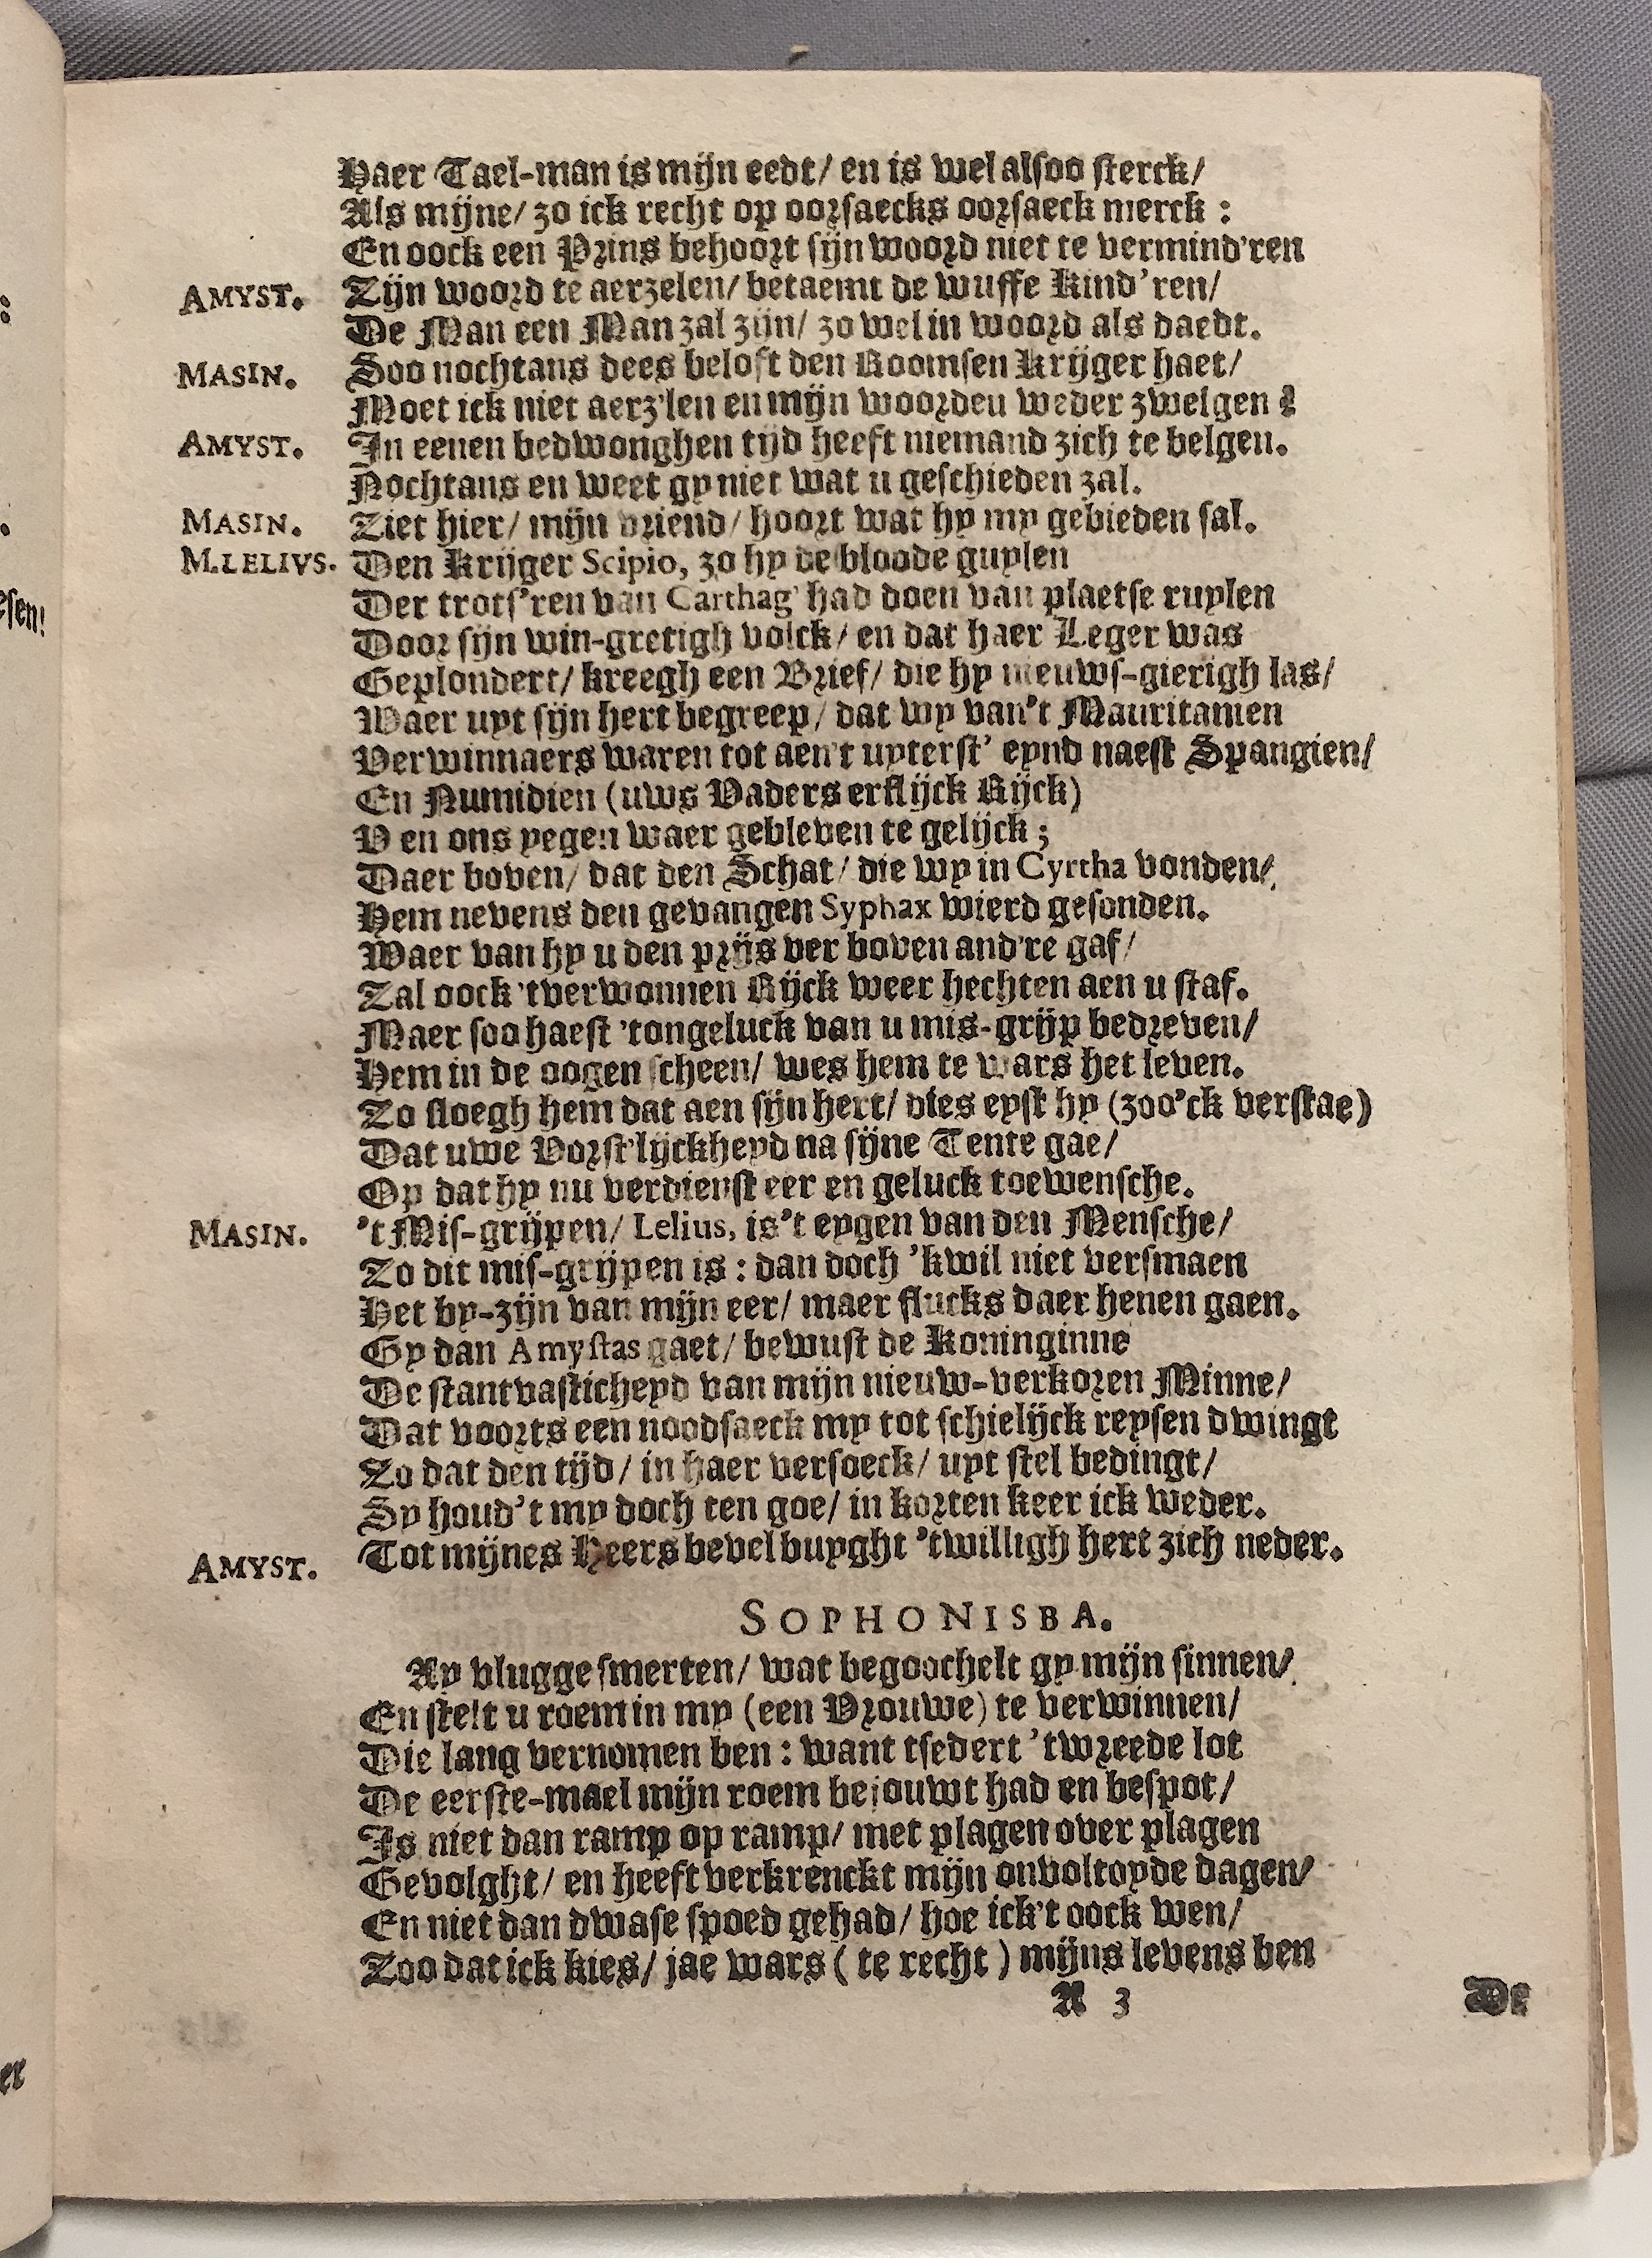 Haer Tael-man is mijn eedt/ en is wel alsoo sterck/
Als mijne/ zo ick recht op oorsaecks oorsaeck merck :
En oock een Prins behoort sijn woord niet te vermind'ren
AMYST. Zijn woord te aerzelen/ betaemt de wuffe Kind'ren/
De Man een Man zal zijn/ zo wel in woord als daedt.
MASIN. Soo nochtans dees beloft den Roomsen Krijger haet/
Moet ick niet aerz'len en mijn woordeu weder zwelgen?
AMYST. In eenen bedwonghen tijd heeft niemand zich te belgen.
Nochtans en weet gy niet wat u geschieden zal.
MASIN. Ziet hier/ mijn vriend/ hoort wat hy my gebieden sal.
M.LELIVS. Den Krijger Scipio, zo hy de bloode guylen
Der trots'ren van Carthag' had doen van plaetse ruylen
Door sijn win-gretigh volck/ en dat haer Leger was
Geplondert/ kreegh een Brief/ die hy nieuws-gierigh las/
Waer uyt sijn hert begreep/ dat wy van't Mauritanien
Verwinnaers waren tot aen't uyterst' eynd naest Spangien/
En Numidien (uws Vaders erflijck Rijck)
V en ons yegen waer gebleven te gelijck ;
Daer boven/ dat den Schat/ die wy in Cyrtha vonden/
Hem nevens den gevangen Syphax wierd gesonden.
Waer van hy u den prijs ver boven and're gaf/
Zal oock 't verwonnen Rijck weer hechten aen u staf.
Maer soo haest 't ongeluck van u mis-grijp bedreven/
Hem in de oogen scheen/ wes hem te wars het leven.
Zo sloegh hem dat aen sijn hert/ dies eyst hy (zoo'ck verstae)
Dat uwe Vorst'lijckheyd na sijne Tente gae/
Op dat hy nu verdienst eer en geluck toewensche.
MASIN. 't Mis-grijpen/ Lelius, is't eygen van den Mensche/
Zo dit mis-grijpen is : dan doch 'k wil niet versmaen
Het by-zijn van mijn eer/ maer flucks daer henen gaen.
Gy dan Amystas gaet/ bewust de Koninginne
De stantvasticheyd van mijn nieuw-verkoren Minne/
Dat voorts een noodsaeck my tot schielijck reysen dwingt
Zo dat den tijd/ in haer versoeck/ uyt stel bedingt/
Sy houd't my doch ten goe/ in korten keer ick weder.
AMYST. Tot mijnes Heers bevel buyght 't willigh hert zich neder.
SOPHONISBA.
Ay vlugge smerten/ wat begoochelt gy mijn sinnen/
En stelt u roem in my (een Vrouwe) te verwinnen/
Die lang vernomen ben : want tsedert 't wreede lot
De eerste-mael mijn roem bejouwt had en bespot/
Is niet dan ramp op ramp/ met plagen over plagen
Gevolght/ en heeft verkrenckt mijn onvoltoyde dagen/
En niet dan dwase spoed gehad/ hoe ick't oock wen/
Zoo dat ick kies/ jae wars ( te recht ) mijns levens ben
A 3 De